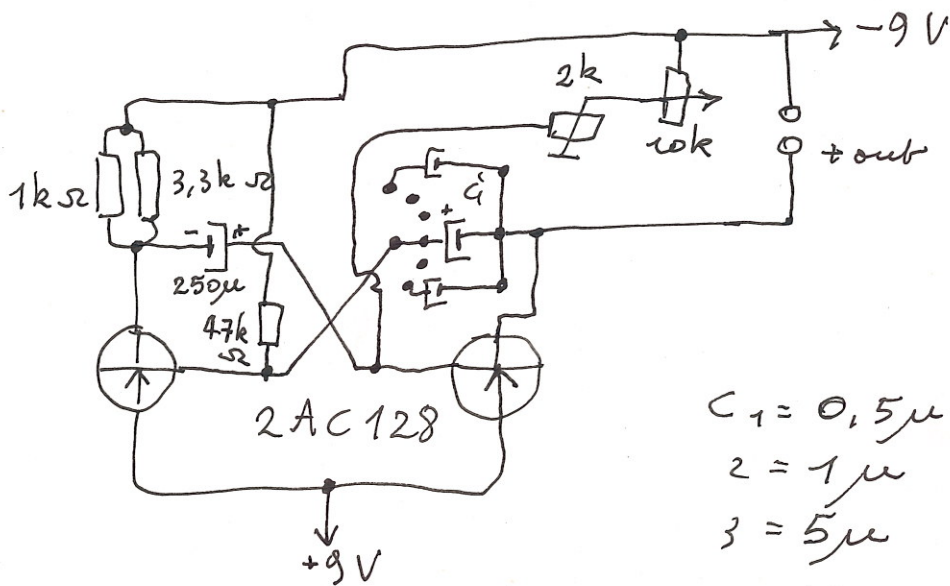 -9 V
2k
10k
+ out
1k Ω
3,3k Ω
Ci
+
- +
250µ
47k
Ω
2 AC 128
C1 = 0,5µ
2 = 1µ
3 = 5µ
+9 V